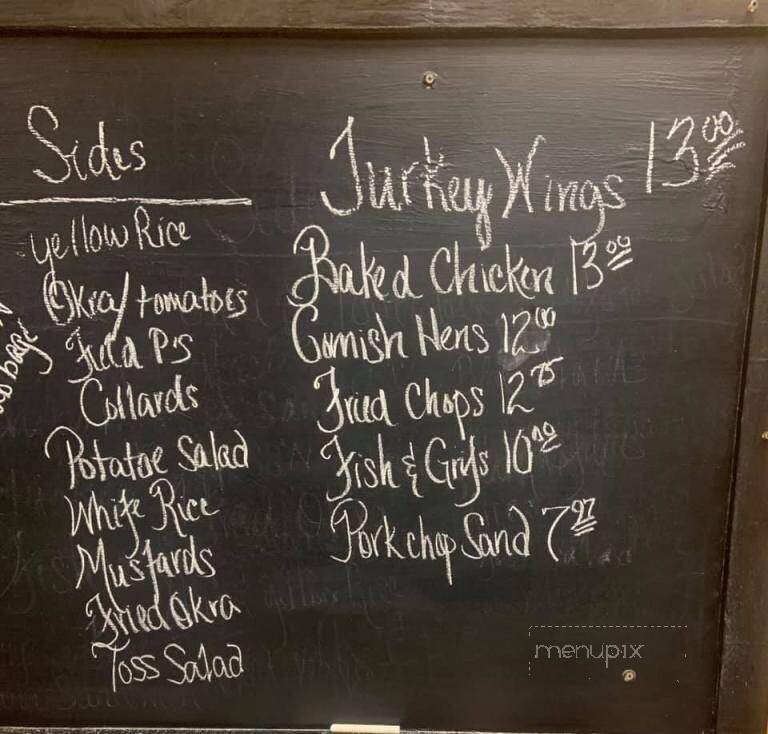 Sides
yellow Rice
Okra/tomatoes
Field P's
Collards
Potatoe Salad
White Rice
Mustards
Fried Okra
Toss Salad
Turkey Wings 13.00
Baked Chicken 13.00
Cornish Hens 12.00
Fried Chops 12.75
Fish & Grits 10.00
Porkchop Sand 7.97
menupix